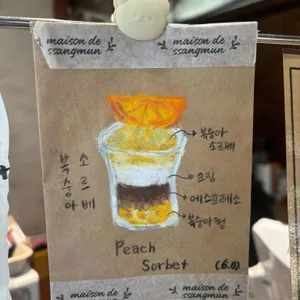 maison de
ssangmun
maison de
ssangmun
복숭아
소르베
복숭아
소르베
크림
에스프레소
복숭아
Peach
Sorbet
(6.0)
maison de
ssangmun
maison de
ssangmun